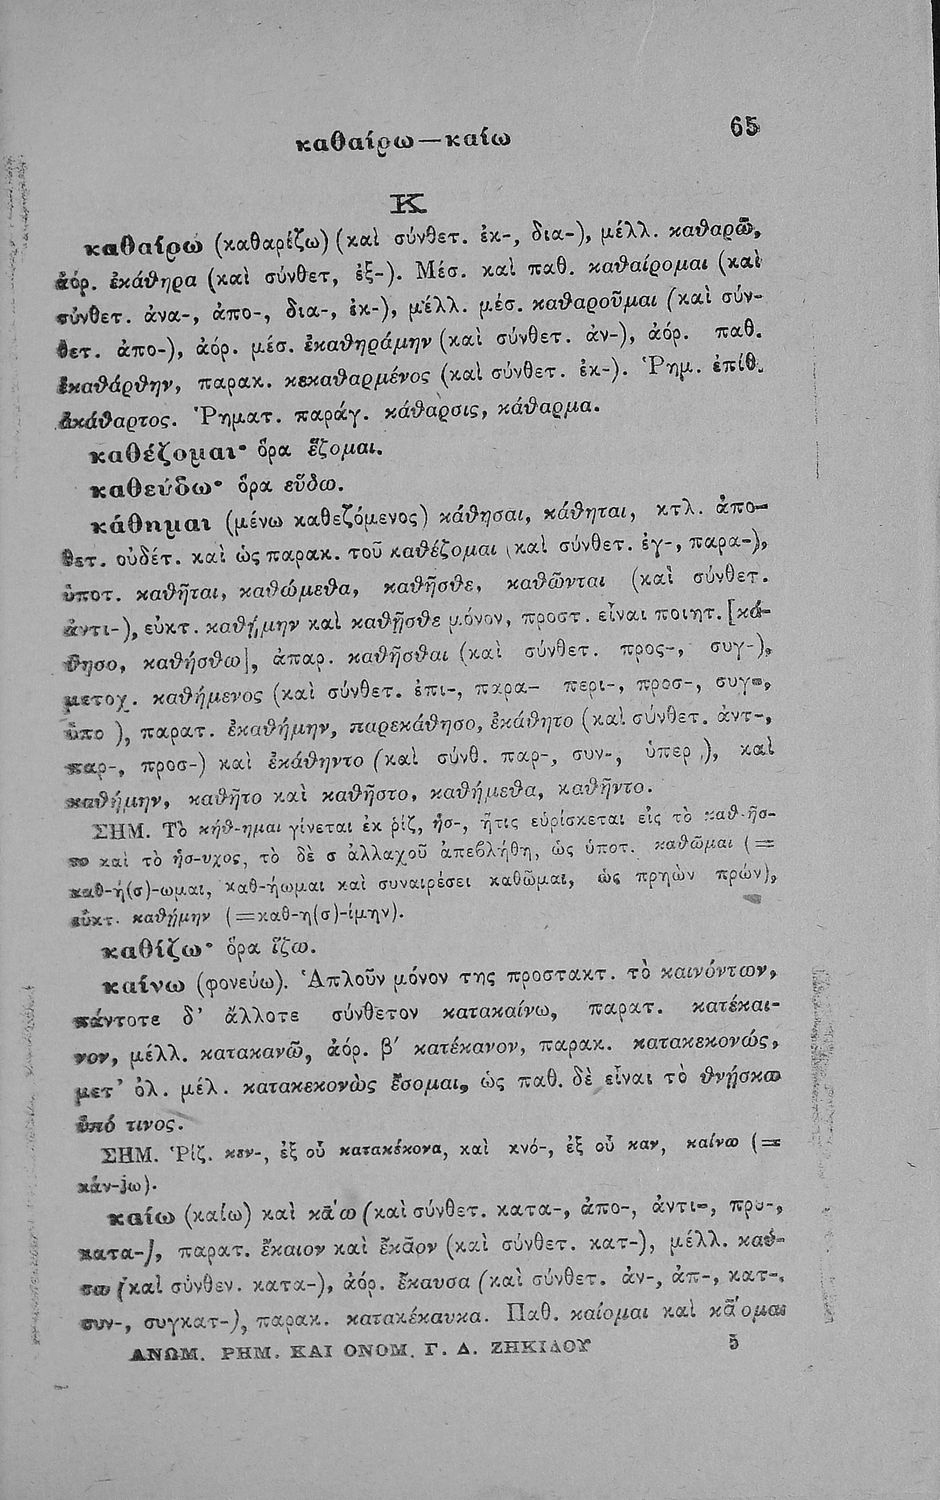 καθαίρω — καίω
65
Κ
καθαίρω (καθαρίζω) (καὶ σύνθετ. ἐκ-, δια-), μέλλ. καθαρῶ,
ἀόρ. ἐκάθηρα (καὶ σύνθετ, ἐξ-). Μέσ. καὶ παθ. καθαίρομαι (καὶ
σύνθετ. ἀνα-, ἀπο-, δια-, ἐκ-), μέλλ. μέσ. καθαροῦμαι (καὶ σύν-
θετ. ἀπο-), ἀόρ. μέσ. ἐκαθηράμην (καὶ σύνθετ. ἀν-), ἀόρ. παθ.
ἐκαθάρθην, παρακ. κεκαθαρμένος (καὶ σύνθετ. ἐκ-). Ῥημ. ἐπίθ.
ἀκάθαρτος. Ῥηματ. παράγ. κάθαρσις, κάθαρμα.
καθέζομαι· ὅρα ἕζομαι.
καθεύδω· ὅρα εὕδω.
κάθημαι (μένω καθεζόμενος) κάθησαι, κάθηται, κτλ. ἀπο-
θετ. οὐδέτ. καὶ ὡς παρακ. τοῦ καθέζομαι (καὶ σύνθετ. ἐγ-, παρα-),
ὑποτ. καθῆται, καθώμεθα, καθῆσθε, καθῶνται (καὶ σύνθετ.
ἀντι-), εὐκτ. καθῄμην καὶ καθῇσθε μόνον, προστ. εἶναι ποιητ. [κά-
θησο, καθήσθω], ἀπαρ. καθῆσθαι (καὶ σύνθετ. προς-, συγ-),
μετοχ. καθήμενος (καὶ σύνθετ. ἐπι-, παρα- περι-, προσ-, συγ-,
ὑπο ), παρατ. ἐκαθήμην, παρεκάθησο, ἐκάθητο (καὶ σύνθετ. ἀντ-,
παρ-, προσ-) καὶ ἐκάθηντο (καὶ σύνθ. παρ-, συν-, ὑπερ ), καὶ
καθήμην, καθῆτο καὶ καθῆστο, καθήμεθα, καθῆντο.
ΣΗΜ. Τὸ κήθ-ημαι γίνεται ἐκ ῥίζ, ἡσ-, ἥτις εὑρίσκεται εἰς τὸ καθ-ῆσ-
το καὶ τὸ ἡσ-υχος, τὸ δὲ σ ἀλλαχοῦ ἀπεβλήθη, ὡς ὑποτ. καθῶμαι (=
καθ-ή(σ)-ωμαι, καθ-ήωμαι καὶ συναιρέσει καθῶμαι, ὡς πρηὼν πρών),
εὐκτ. καθῄμην (=καθ-η(σ)-ίμην).
καθίζω· ὅρα ἵζω.
καίνω (φονεύω). Ἁπλοῦν μόνον της προστακτ. τὸ καινόντων,
πάντοτε δ' ἄλλοτε σύνθετον κατακαίνω, παρατ. κατέκαι-
νον, μέλλ. κατακανῶ, ἀόρ. β′ κατέκανον, παρακ. κατακεκονώς,
μετ' ὁλ. μέλ. κατακεκονὼς ἔσομαι, ὡς παθ. δὲ εἶναι τὸ θνήσκω
ὑπό τινος.
ΣΗΜ. Ῥίζ. κεν-, ἐξ οὗ κατακέκονα, καὶ κνό-, ἐξ οὗ καν, καίνω (=
κάν-jω).
καίω (καίω) καὶ κᾱ́ω (καὶ σύνθετ. κατα-, ἀπο-, ἀντι-, προ-,
κατα-), παρατ. ἔκαιον καὶ ἔκᾱον (καὶ σύνθετ. κατ-), μέλλ. καύ-
σω (καὶ σύνθεν. κατα-), ἀόρ. ἔκαυσα (καὶ σύνθετ. ἀν-, ἀπ-, κατ-,
συν-, συγκατ-), παρακ. κατακέκαυκα. Παθ. καίομαι καὶ κᾱ́ομαι
ΑΝΩΜ. ΡΗΜ. ΚΑΙ ΟΝΟΜ. Γ. Δ. ΖΗΚΙΔΟΥ
5